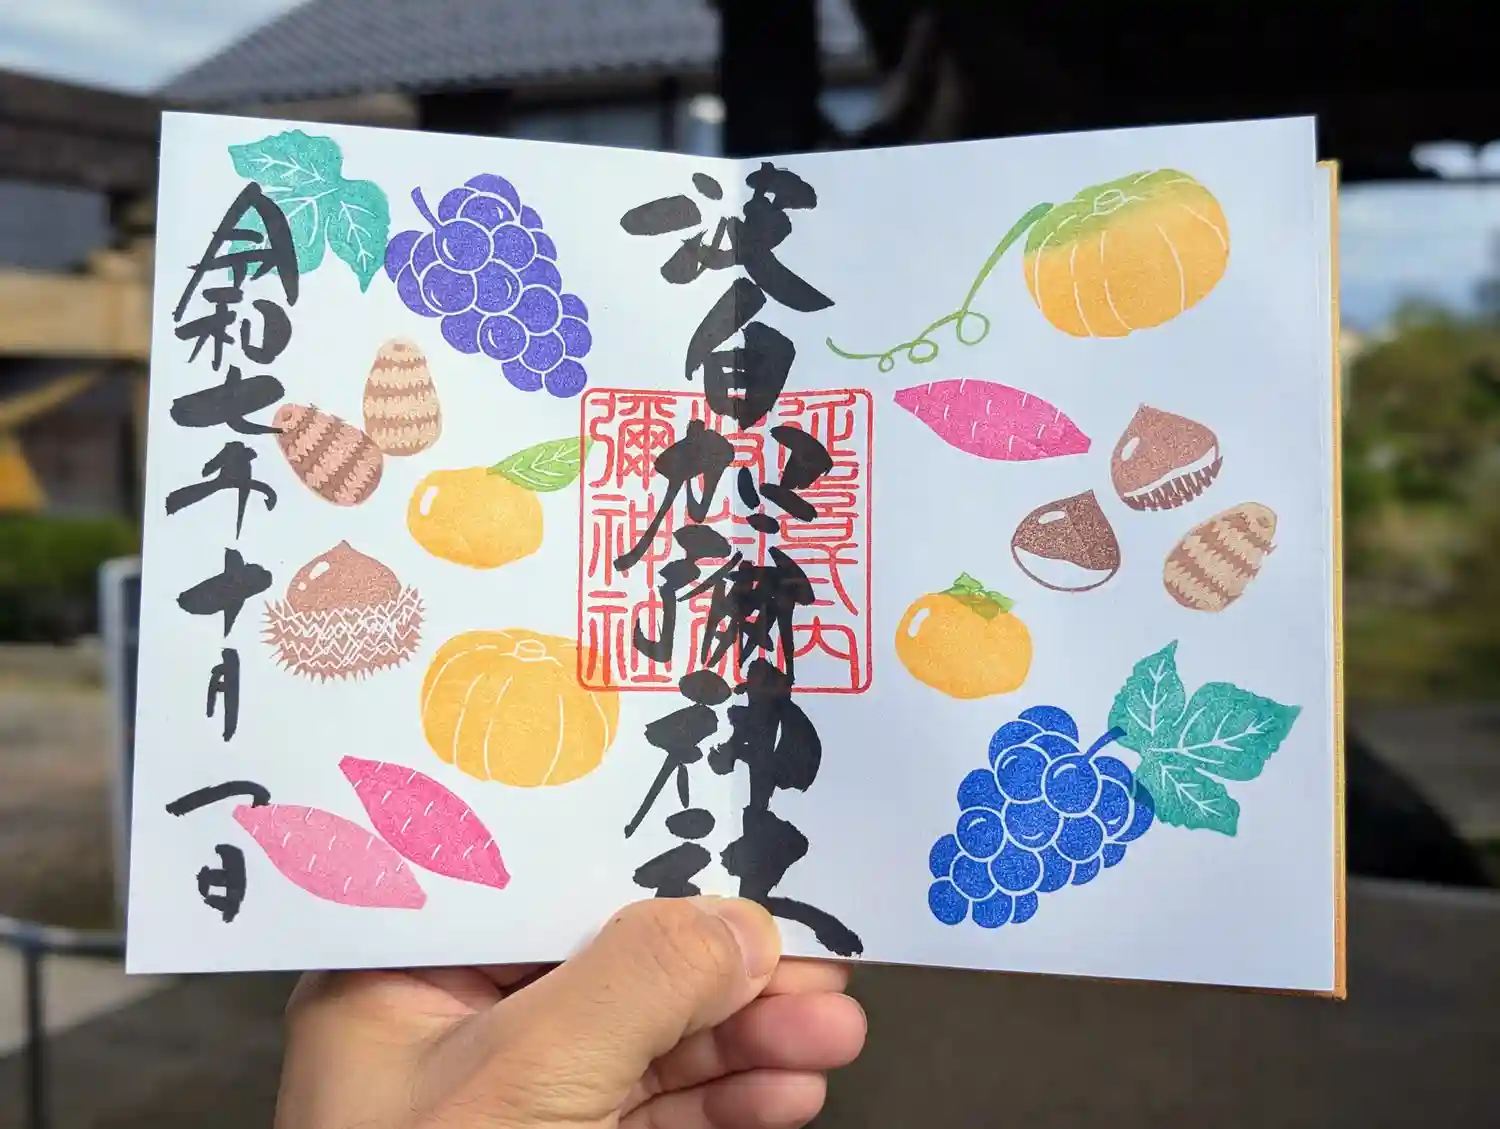 波自加彌神社
延喜式内
波自加
彌神社
令和七年十月一日